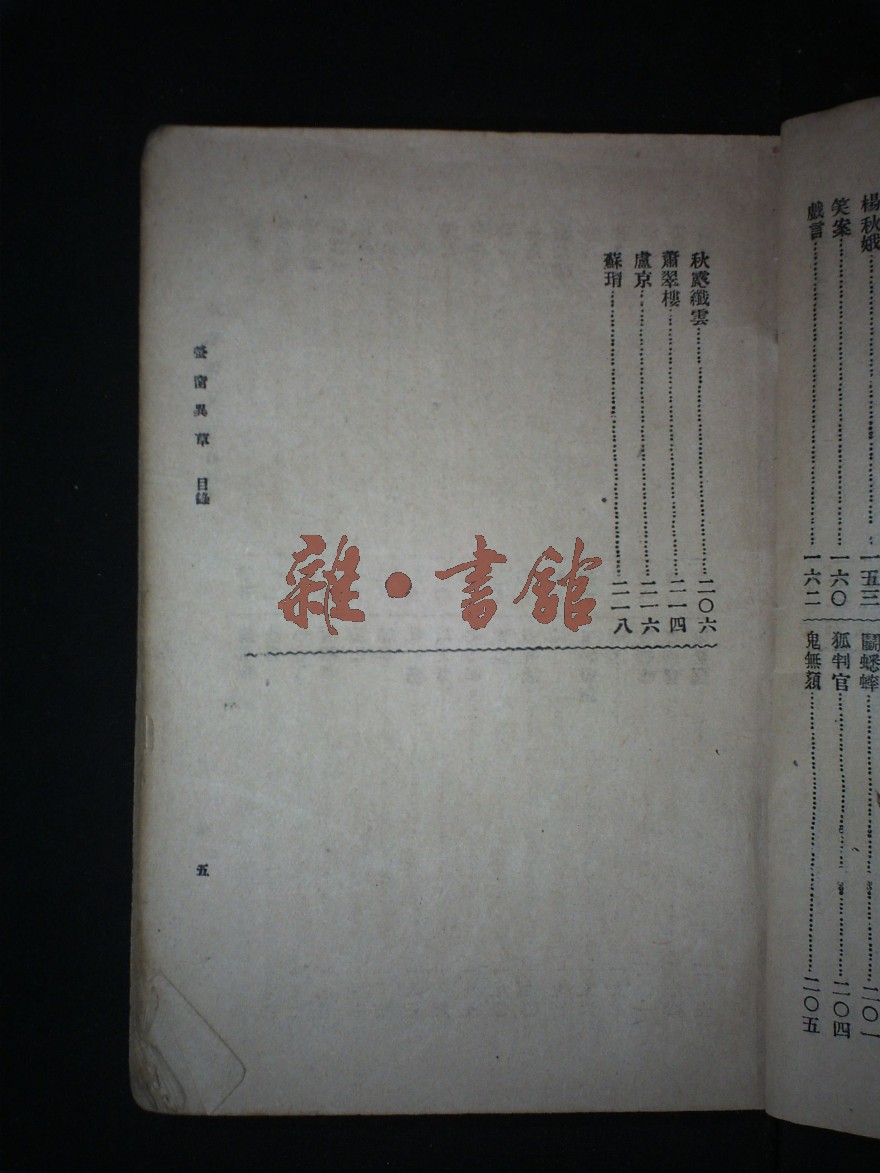 楊秋娥……一五三
笑案……一六〇
戲言……一六二
鬭蟋蟀……二〇一
狐判官……二〇四
鬼無頦……二〇五
秋露纖雲……二〇六
蕭翠樓……二一四
盧京……二一六
蘇瑁……二一八
螢窗異草 目錄
五
雜·書館